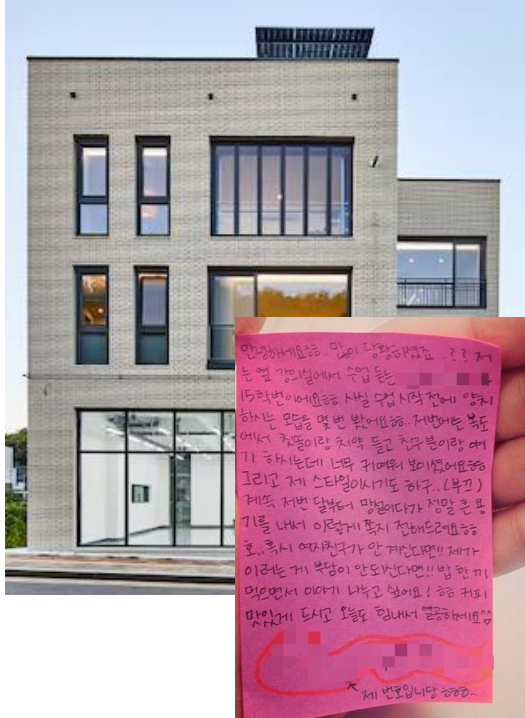 안녕하세요ㅎㅎ.. 많이 당황하셨죠..?? 저
는 옆 강의실에서 수업 듣는
15학번이에요ㅎㅎ 사실 수업 시작 전에 양치
하시는 모습을 몇 번 봤어요ㅎㅎ. 저번에는 복도
에서 칫솔이랑 치약 들고 친구분이랑 얘
기 하시는데 너무 귀여워 보이셨어요ㅎㅎ
그리고 제 스타일이시기도 하구..(부끄)
계속 저번 달부터 망설이다가 정말 큰 용
기를 내서 이렇게 쪽지 전해드려요ㅎㅎ
호..혹시 여자친구가 안 계신다면!! 제가
이러는 게 부담이 안 되신다면!! 밥 한 끼
먹으면서 이야기 나누고 싶어요! ㅎㅎ 커피
맛있게 드시고 오늘도 힘내서 열공하세요
제 번호입니당 ㅎㅎㅎ..